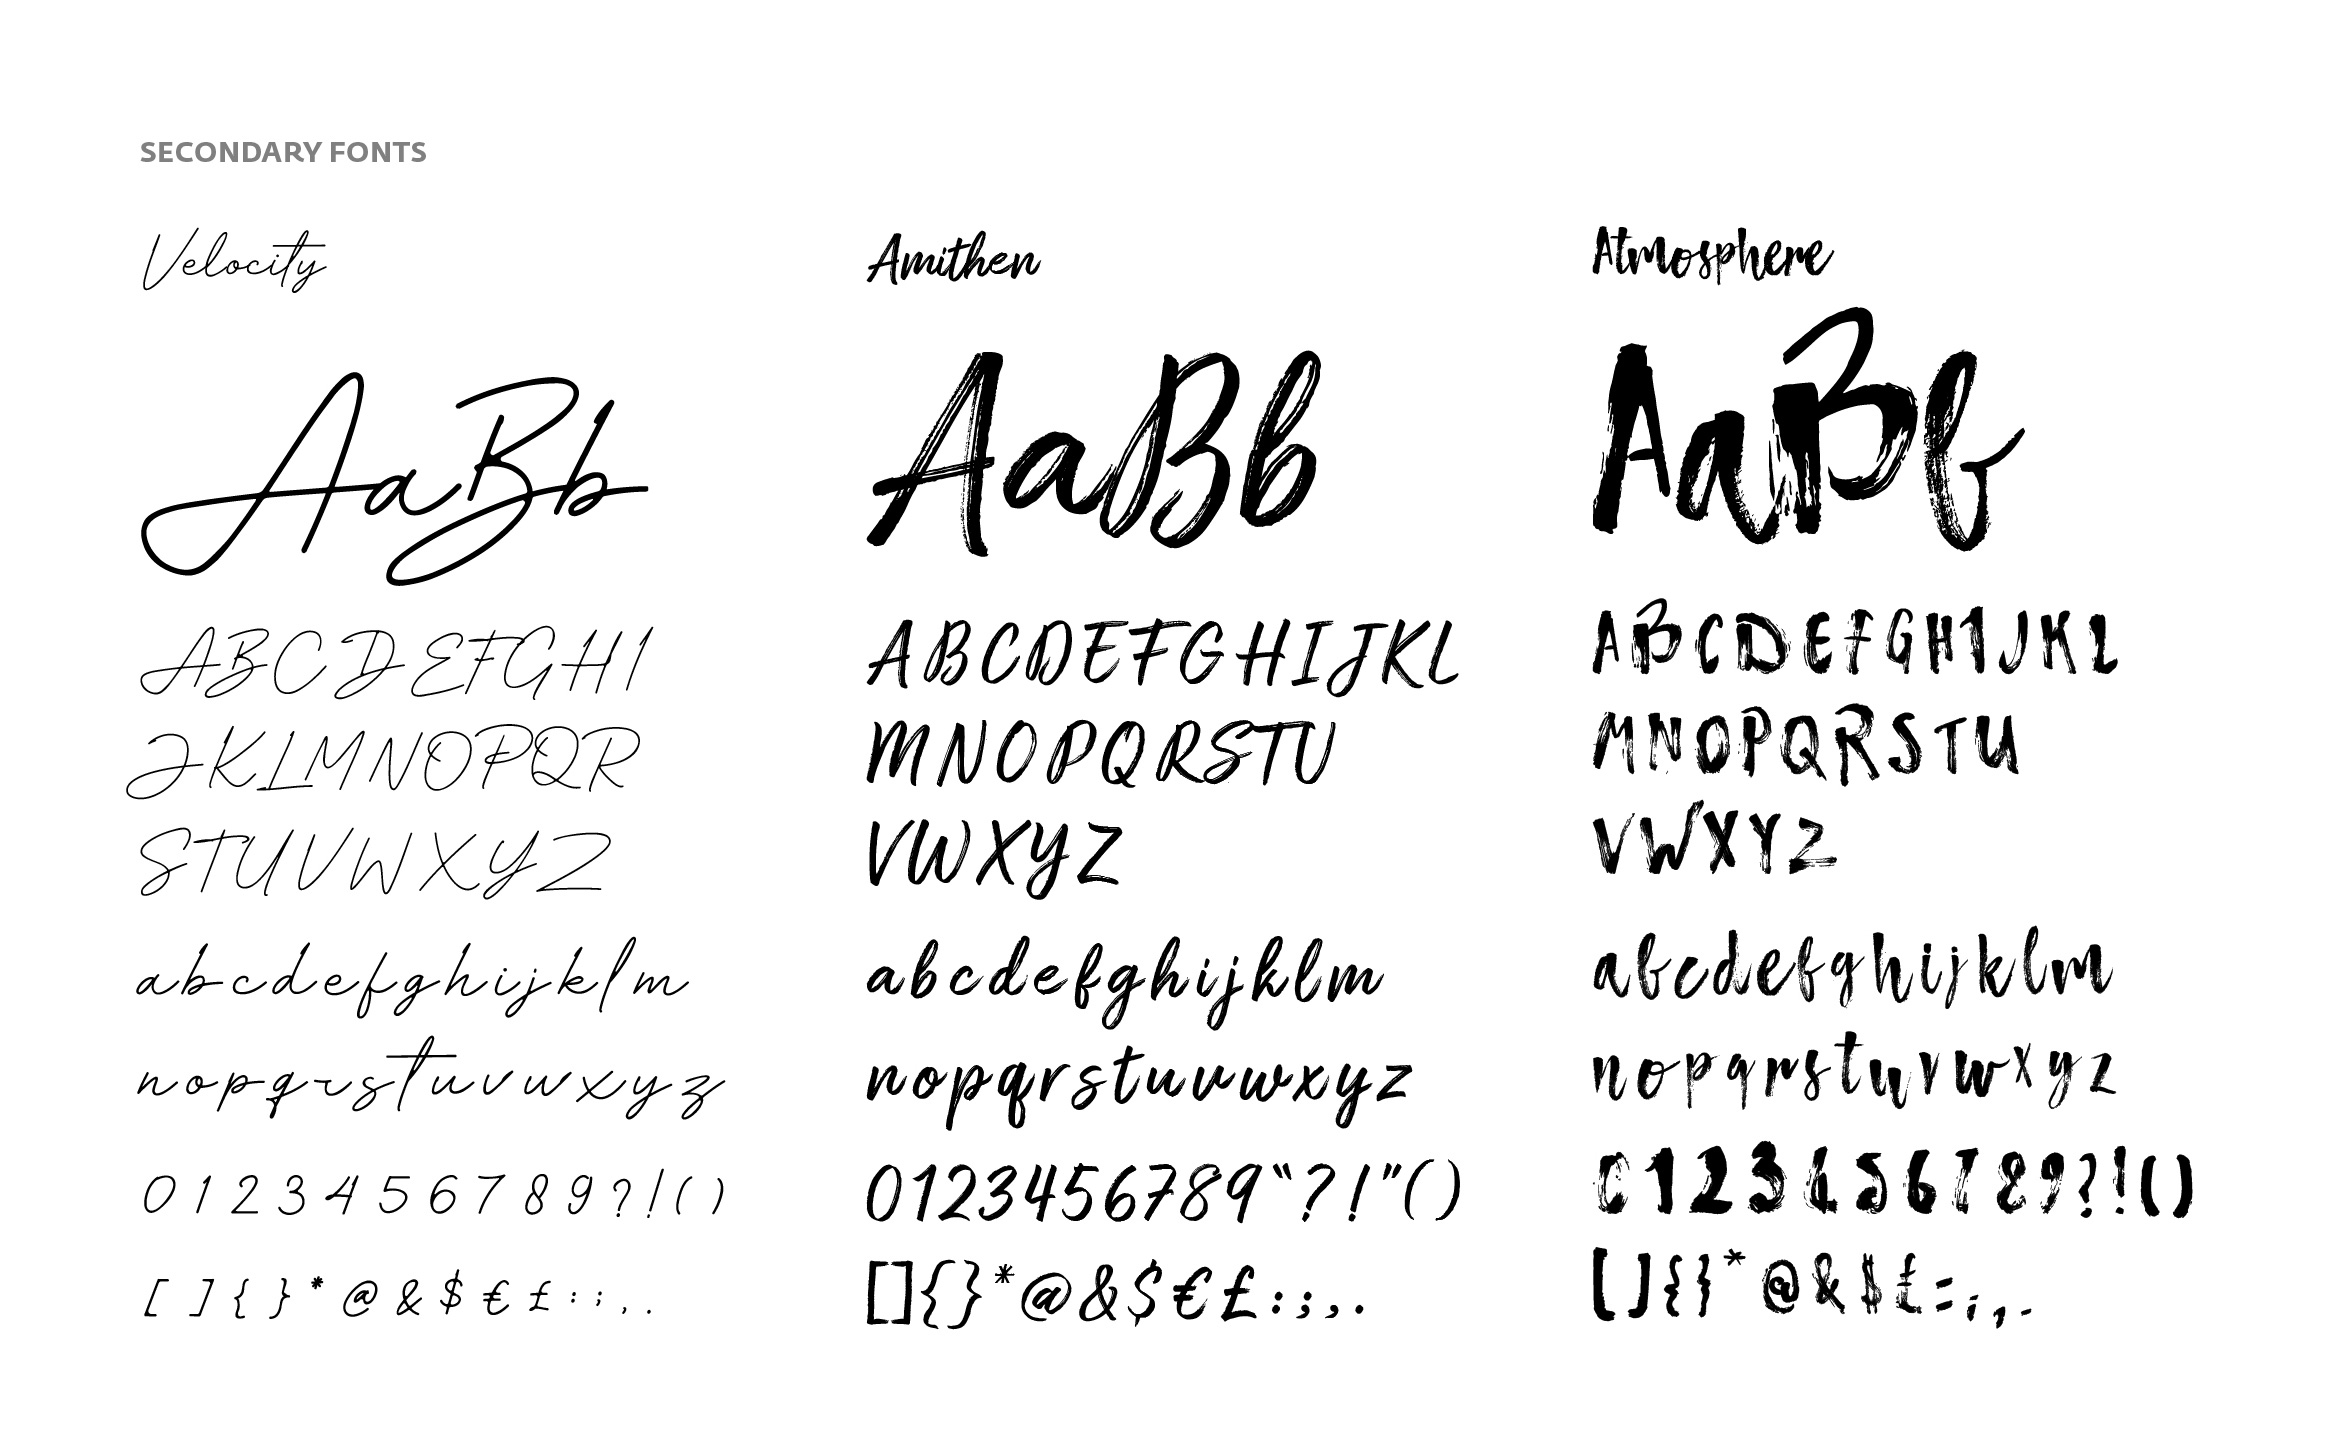 SECONDARY FONTS
Velocity
AaBb
ABCDEFGHI
JKLMNOPQR
STUVWXYZ
abcdefghijklm
nopqrstuvwxyz
0 1 2 3 4 5 6 7 8 9 ? ! ( )
[ ] { } * @ & $ € £ : ; , .
Amithen
AaBb
ABCDEFGHIJKL
MNOPQRSTU
VWXYZ
abcdefghijklm
nopqrstuvwxyz
0123456789“?!”()
[]{}*@&$€£:;,.
Atmosphere
AaBb
ABCDEFGHIJKL
MNOPQRSTU
VWXYZ
abcdefghijklm
nopqrstuvwxyz
0123456789?!()
[]{}*@&$£:;,.